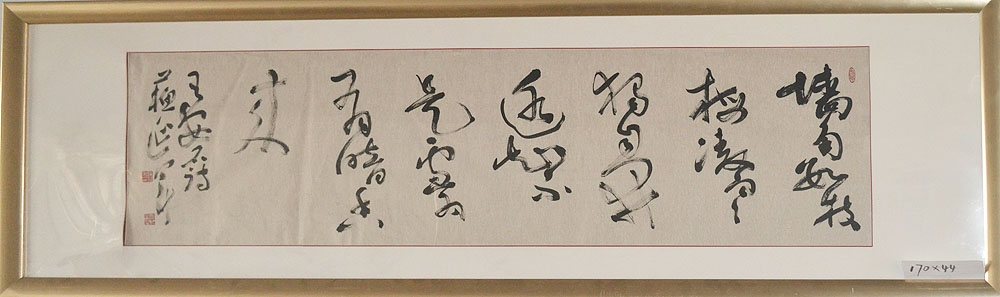 墙角数枝
梅凌寒
独自开
遥知不
是雪为
有暗香
来
王安石诗
170×44